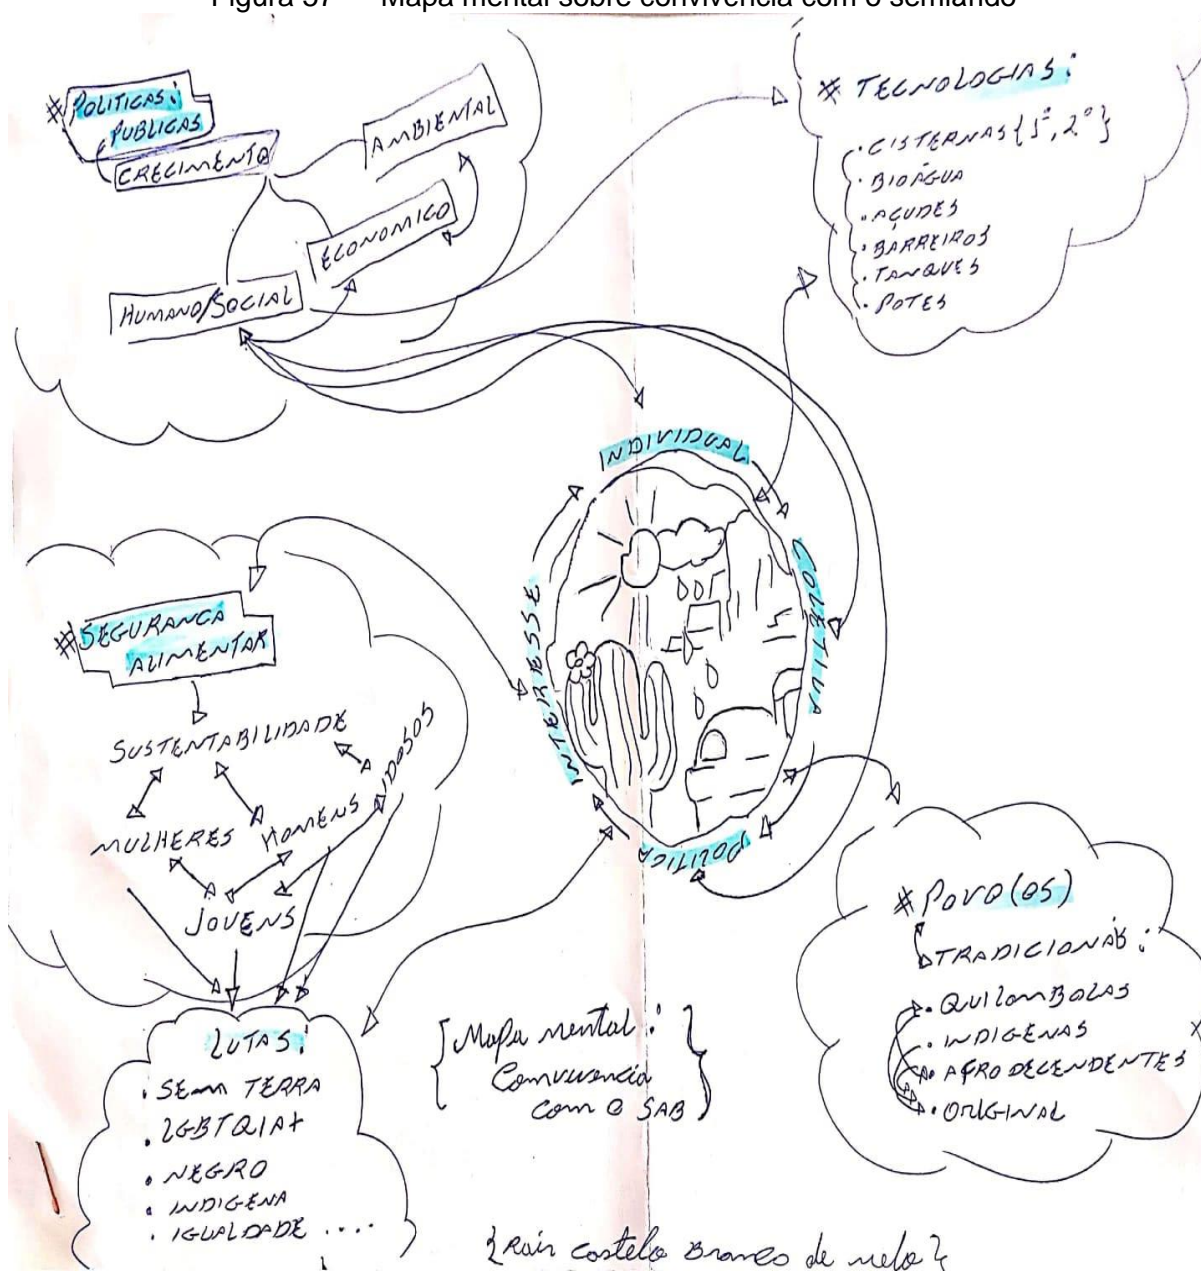 Mapa mental sobre convivência com o semiárido
# POLITICAS:
PUBLICAS
CRECIMENTO
AMBIENTAL
ECONOMICO
HUMANO/SOCIAL
# TECNOLOGIAS:
• CISTERNAS {1ª, 2ª}
• BIOÁGUA
• AÇUDES
• BARREIROS
• TANQUES
• POTES
INDIVIDUAL
COLETIVA
POLITICA
INTERESSE
# SEGURANCA
ALIMENTAR
SUSTENTABILIDADE
IDOSOS
MULHERES
HOMENS
JOVENS
LUTAS:
• SEM TERRA
• LGBTQIA+
• NEGRO
• INDIGENA
• IGUALDADE ....
# POVO(OS)
TRADICIONAIS:
• QUILOMBOLAS
• INDIGENAS
• AFRO DECENDENTES
• ORIGINAL
{Mapa mental:
Convivencia
com o SAB}
Castelo Branco de melo}